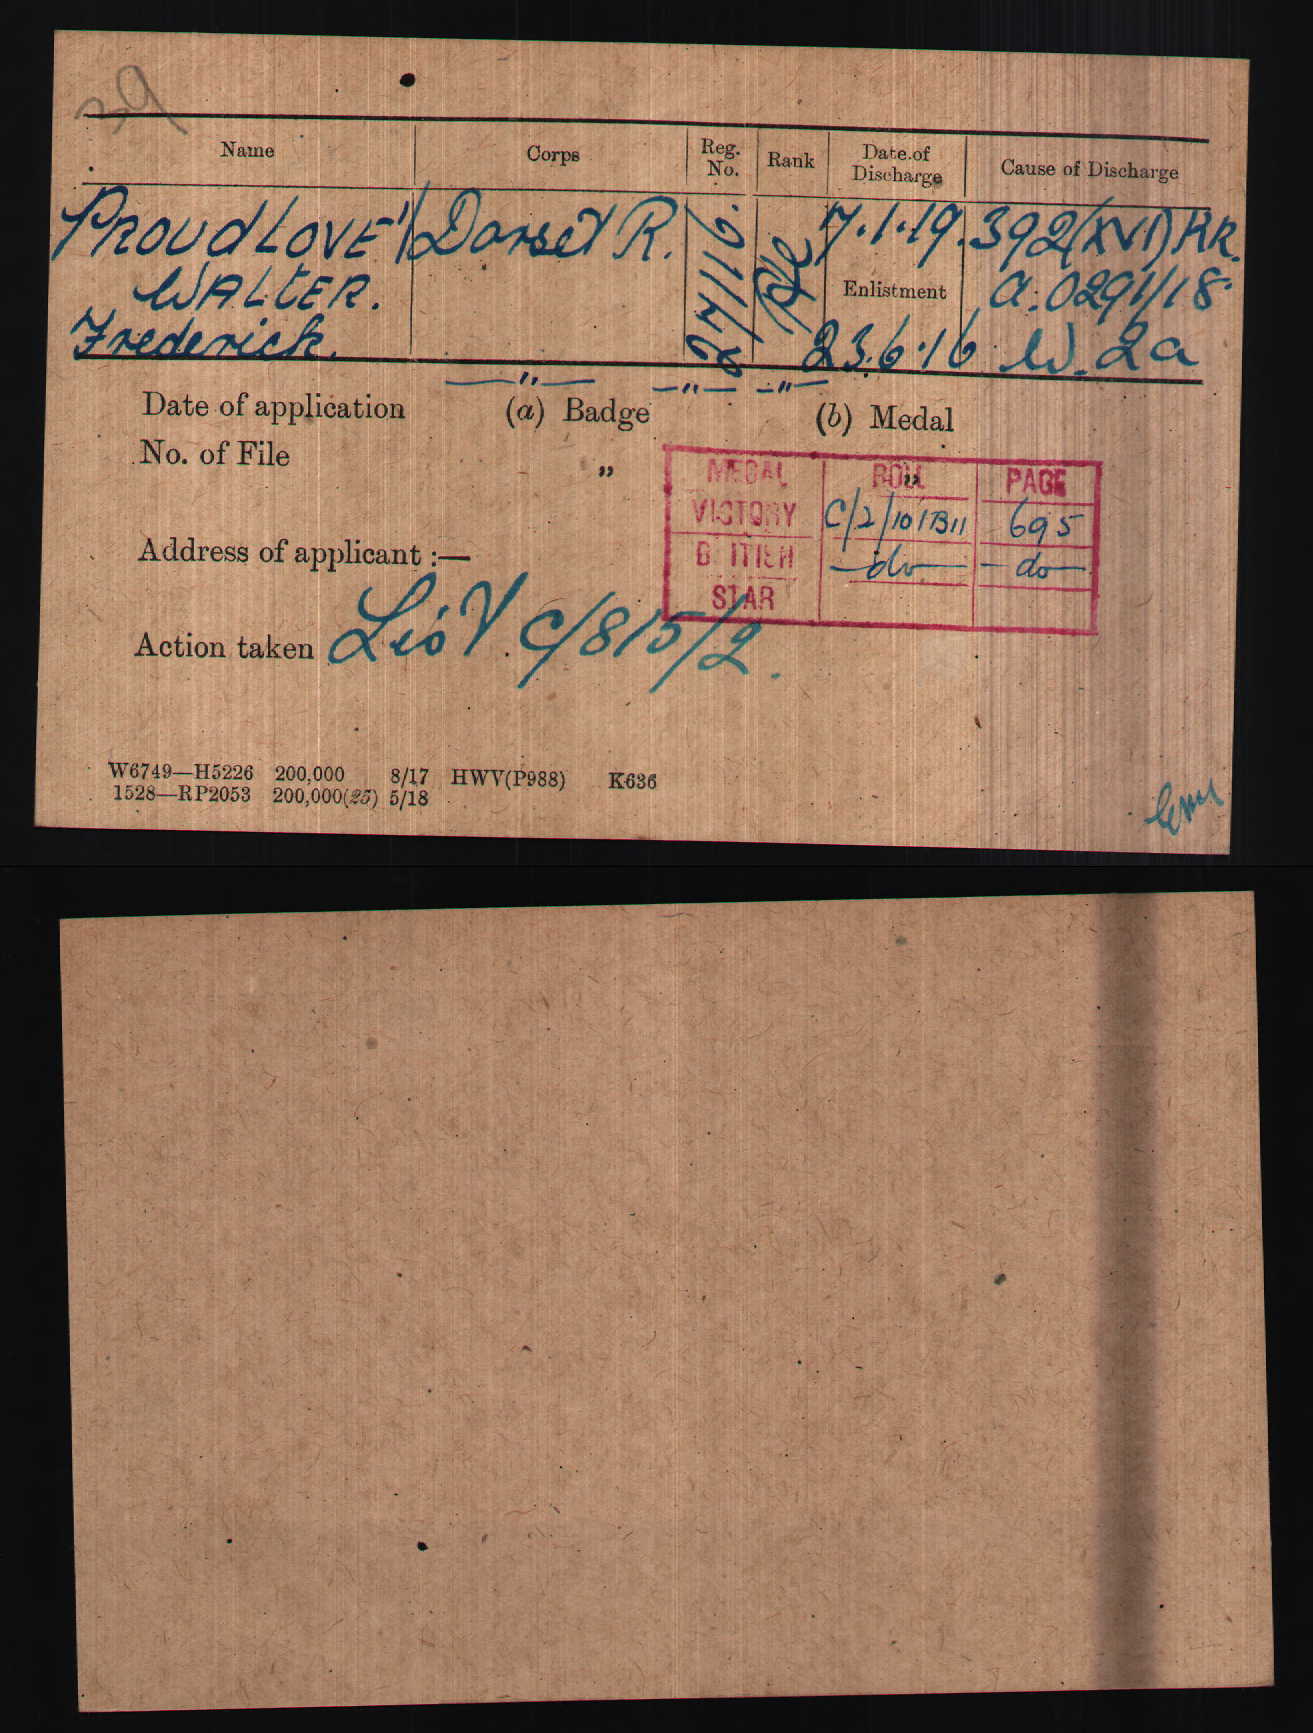 39
Name Corps Reg. No. Rank Date of Discharge Cause of Discharge
PROUDLOVE Dorset R. 27116. Pte 7.1.19. 392(XVI)KR.
WALTER. Enlistment A.0291/18.
Frederick. 23.6.16. W. 2a
—"— —"— —"—
Date of application (a) Badge (b) Medal
No. of File " "
MEDAL ROLL PAGE
VICTORY C/2/101B11 695
BRITISH —do— —do—
STAR
Address of applicant :—
Action taken List C/815/2.
W6749—H5226 200,000 8/17 HWV(P988) K636
1528—RP2053 200,000(25) 5/18